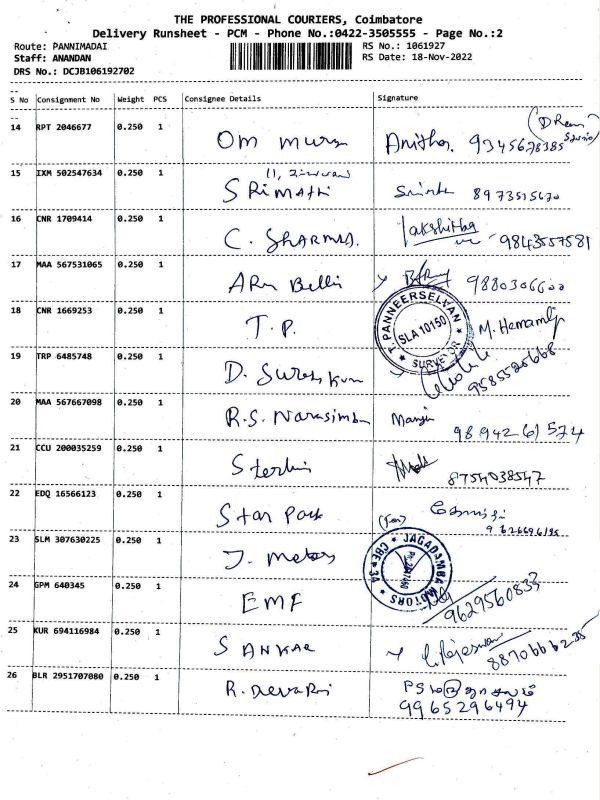 THE PROFESSIONAL COURIERS, Coimbatore
Delivery Runsheet - PCM - Phone No.:0422-3505555 - Page No.:2
Route: PANNIMADAI RS No.: 1061927
Staff: ANANDAN RS Date: 18-Nov-2022
DRS No.: DCJB106192702
S No Consignment No Weight PCS Consignee Details Signature
14 RPT 2046677 0.250 1 Om Anitha.
15 IXM 502547634 0.250 1 SRIMATHI 8973515670
16 CNR 1709414 0.250 1 C. SHARMA. Lakshitha 9843557581
17 MAA 567531065 0.250 1 ARN 9880306600
18 CNR 1669253 0.250 1 T.P. T. PANNEERSELVAN SLA 10150 SURVEYOR M.
19 TRP 6485748 0.250 1 D. Suresh Kum 9585526668
20 MAA 567667098 0.250 1 R.S. Narasimhn 9894261574
21 CCU 200035259 0.250 1 8754038547
22 EDQ 16566123 0.250 1 Star Park
23 SLM 307630225 0.250 1 J. Motors JAGADAMBA MOTORS CBE-34
24 GPM 640345 0.250 1 EMF 9629560833
25 KUR 694116984 0.250 1 SANKAR
26 BLR 2951707080 0.250 1 R.
9965296494